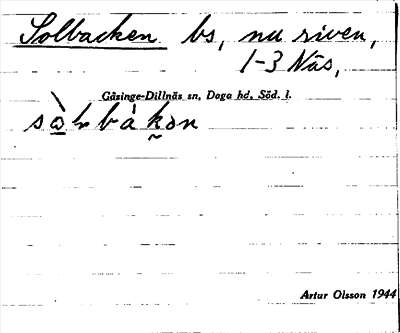 Solbacken bs, nu riven,
1-3 Näs,
Gåsinge-Dillnäs sn, Daga hd, Söd. l.
Artur Olsson 1944